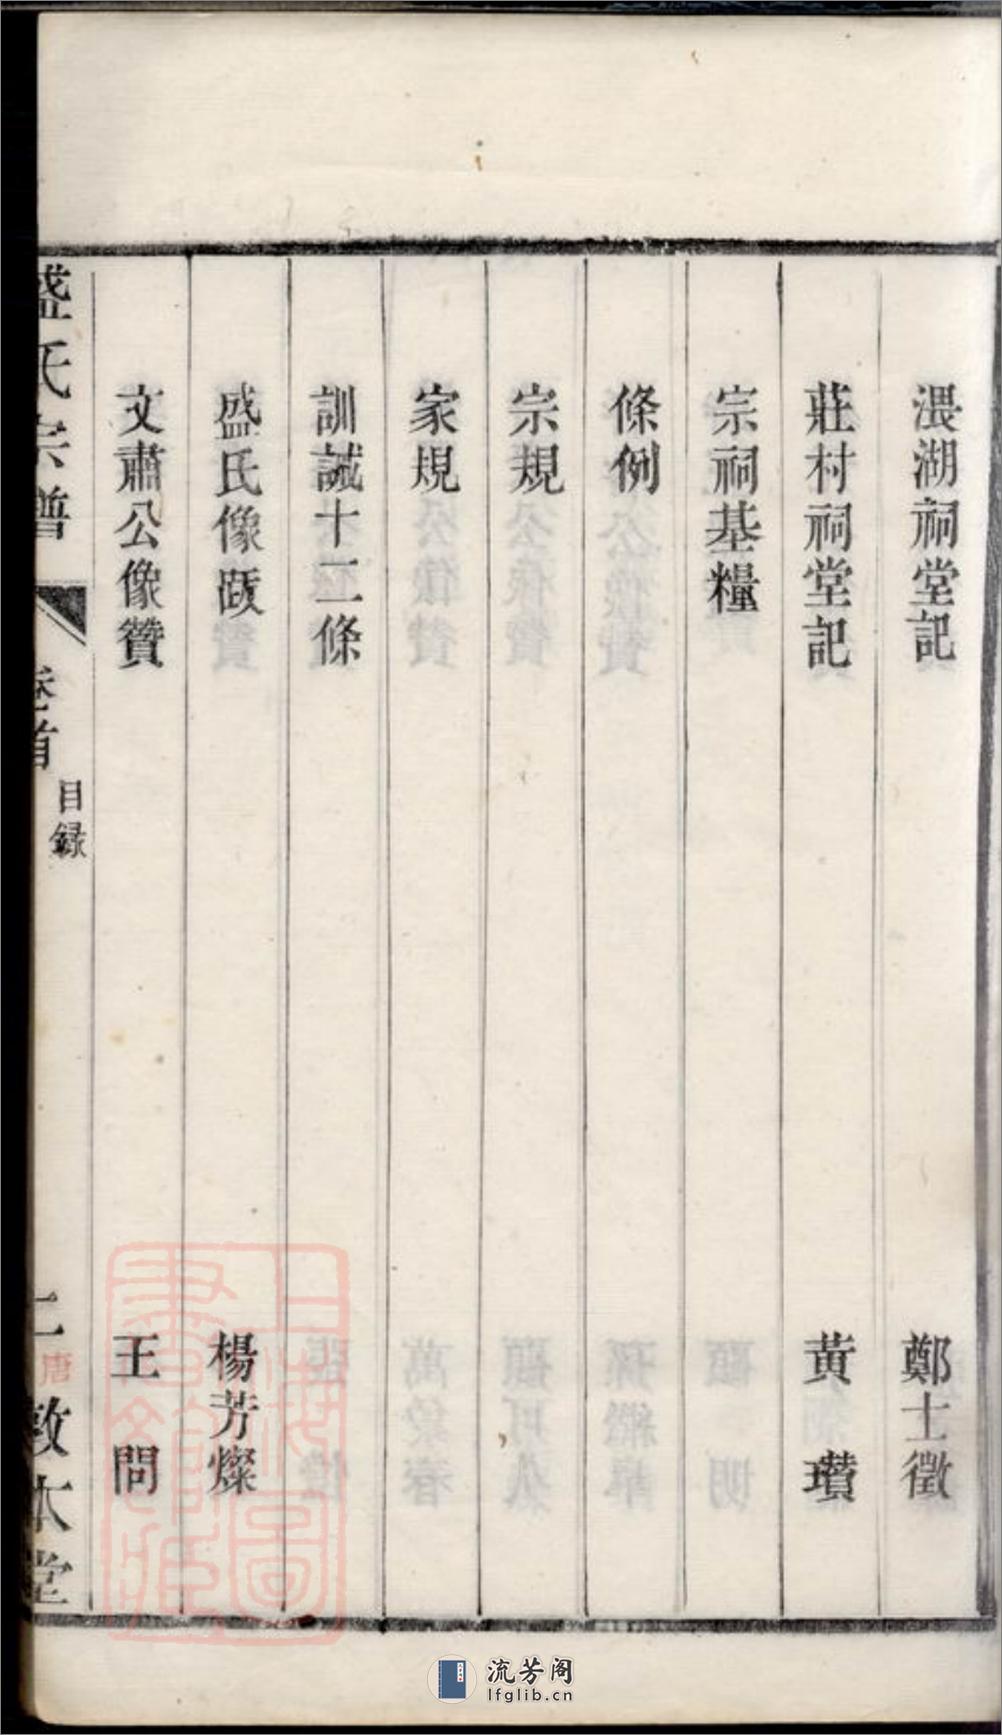 渨湖祠堂記 鄭士徵
莊村祠堂記 黃瓚
宗祠基糧
條例
宗規
家規
訓誡十二條
盛氏像䟦 楊芳燦
文肅公像贊 王問
盛氏宗譜 卷首 目錄 二 敦本堂
唐
上海圖書館藏
流芳阁
lfglib.cn